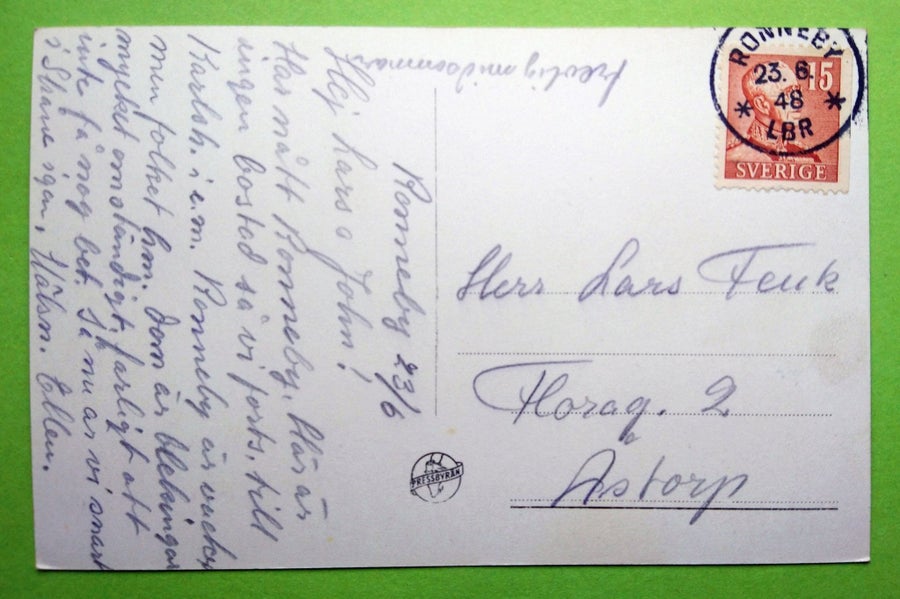 Ronneby 23/6
Hej Lars o John!
Har nått Ronneby. Här är
ingen bostad så vi forts. till
Karlsh. i e.m. Ronneby är vacker
men folket hm. Dom är blekingar
mycket omständigt, farligt att
inte få nog bet. Så nu är vi snart
i Skåne igen. Hälsn. Ellen.
Trevlig midsommar
RONNEBY
23. 6.
48
LBR
15
SVERIGE
Herr Lars Fenk
Florag. 2
Åstorp
PRESSBYRÅN